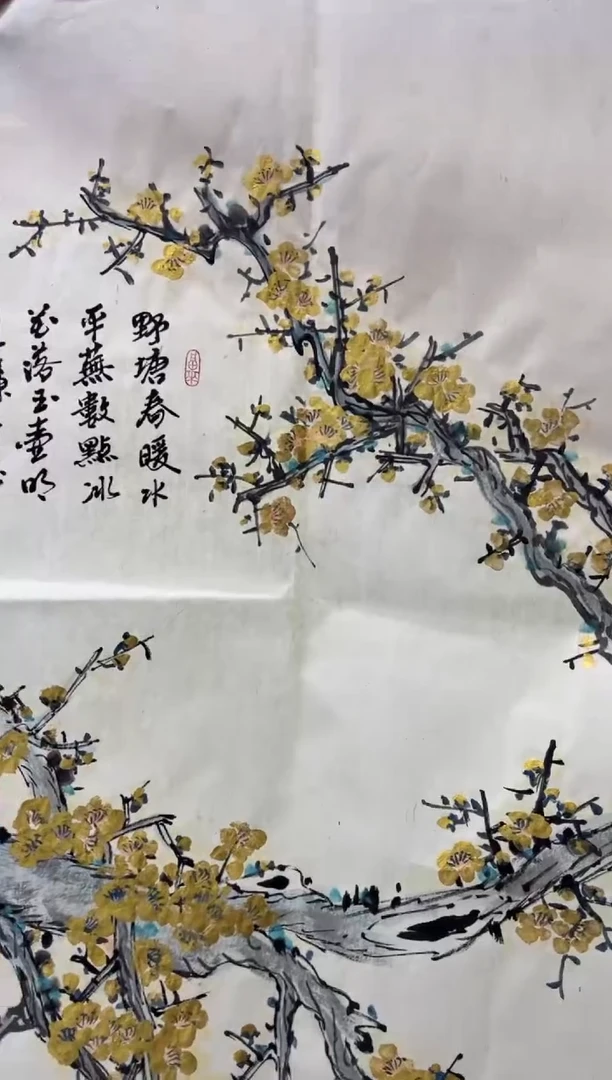 野塘春暖水
平蕪數點冰
花落玉壺明